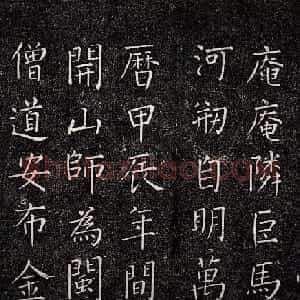 庵庵隣臣馬
河剏自明萬
曆甲辰年間
開山師為閩
僧道安布金